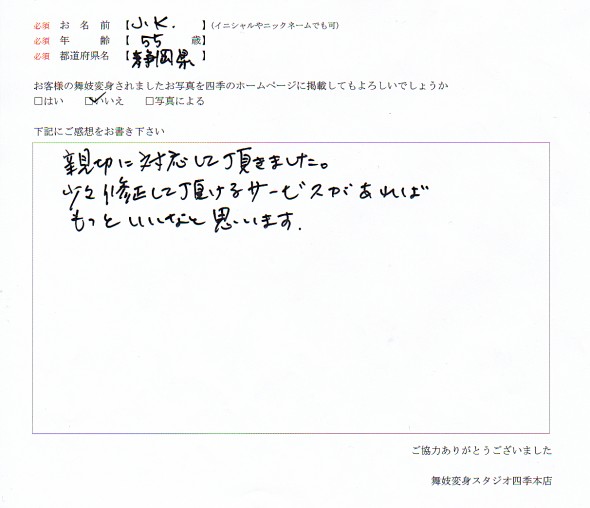 必須 お名前 【J.K. 】(イニシャルやニックネームでも可)
必須 年齢 【 55 歳】
必須 都道府県名 【静岡県 】
お客様の舞妓変身されましたお写真を四季のホームページに掲載してもよろしいでしょうか
□はい ☑いいえ □写真による
下記にご感想をお書き下さい
親切に対応して頂きました。
少々修正して頂けるサービスがあれば
もっといいなと思います.
ご協力ありがとうございました
舞妓変身スタジオ四季本店